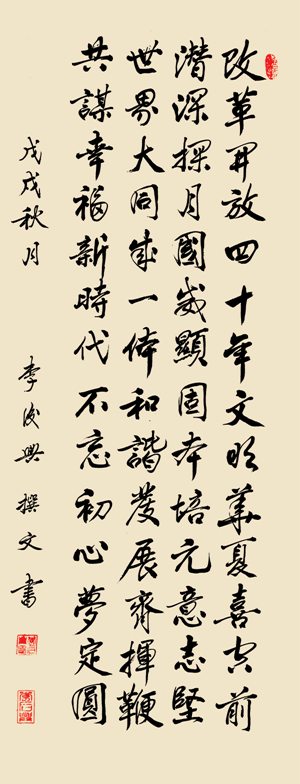 改革開放四十年文明華夏喜空前
潜深探月國威顯固本培元意志堅
世界大同成一体和諧發展齊揮鞭
共謀幸福新時代不忘初心夢定圓
戊戌秋月 李俊興 撰文書